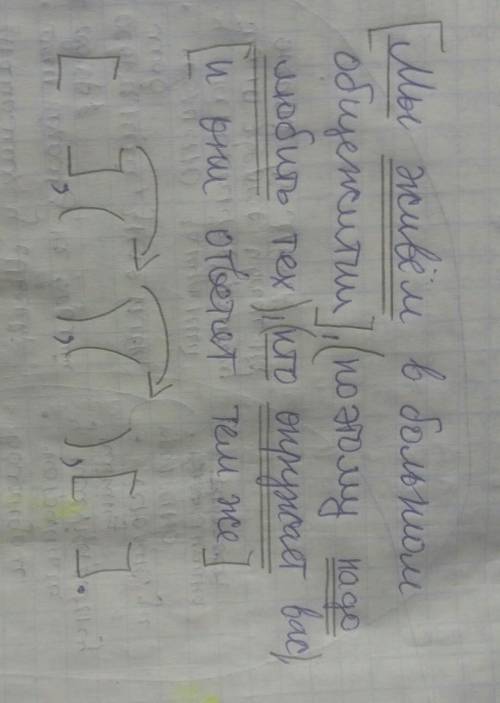 [Мы живём в большом
общежитии], (поэтому надо
любить тех), (кто окружает вас),
[и они ответят тем же]
[ ], ( ), ( ), [ ].